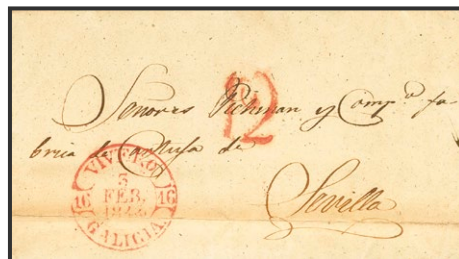 Señores Pickman y Comp.ª fa-
brica de Cartuja de
Sevilla
VIVERO
FEB.
16 16
GALICIA